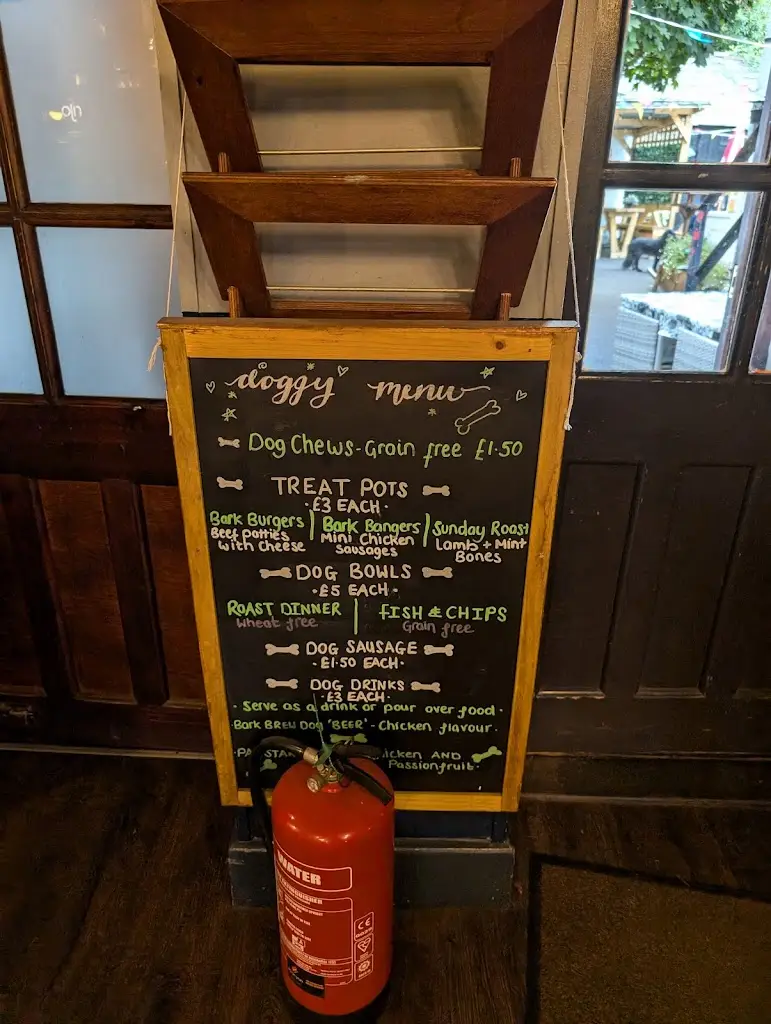 doggy menu
Dog Chews-Grain free £1.50
TREAT POTS
·£3 EACH·
Bark Burgers | Bark Bangers | Sunday Roast
Beef Patties with cheese | Mini Chicken Sausages | Lamb + Mint Bones
DOG BOWLS
·£5 EACH·
ROAST DINNER | FISH & CHIPS
Wheat free | Grain free
DOG SAUSAGE
·£1.50 EACH·
DOG DRINKS
·£3 EACH·
· Serve as a drink or pour over food ·
·Bark BREW Dog 'BEER' - Chicken flavour ·
AND
Passionfruit ·
WATER
EXTINGUISHER
CE